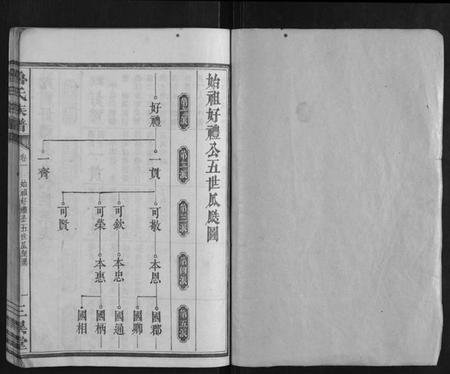 始祖好禮公五世瓜瓞圖
第一派
第二派
第三派
第四派
第五派
好禮
一貫
一齊
可敬
可欽
可榮
可賢
本恩
本忠
本惠
國郡
國卿
國通
國柄
國相
氏族譜
卷
始祖好禮公五世瓜瓞圖
一
三
堂